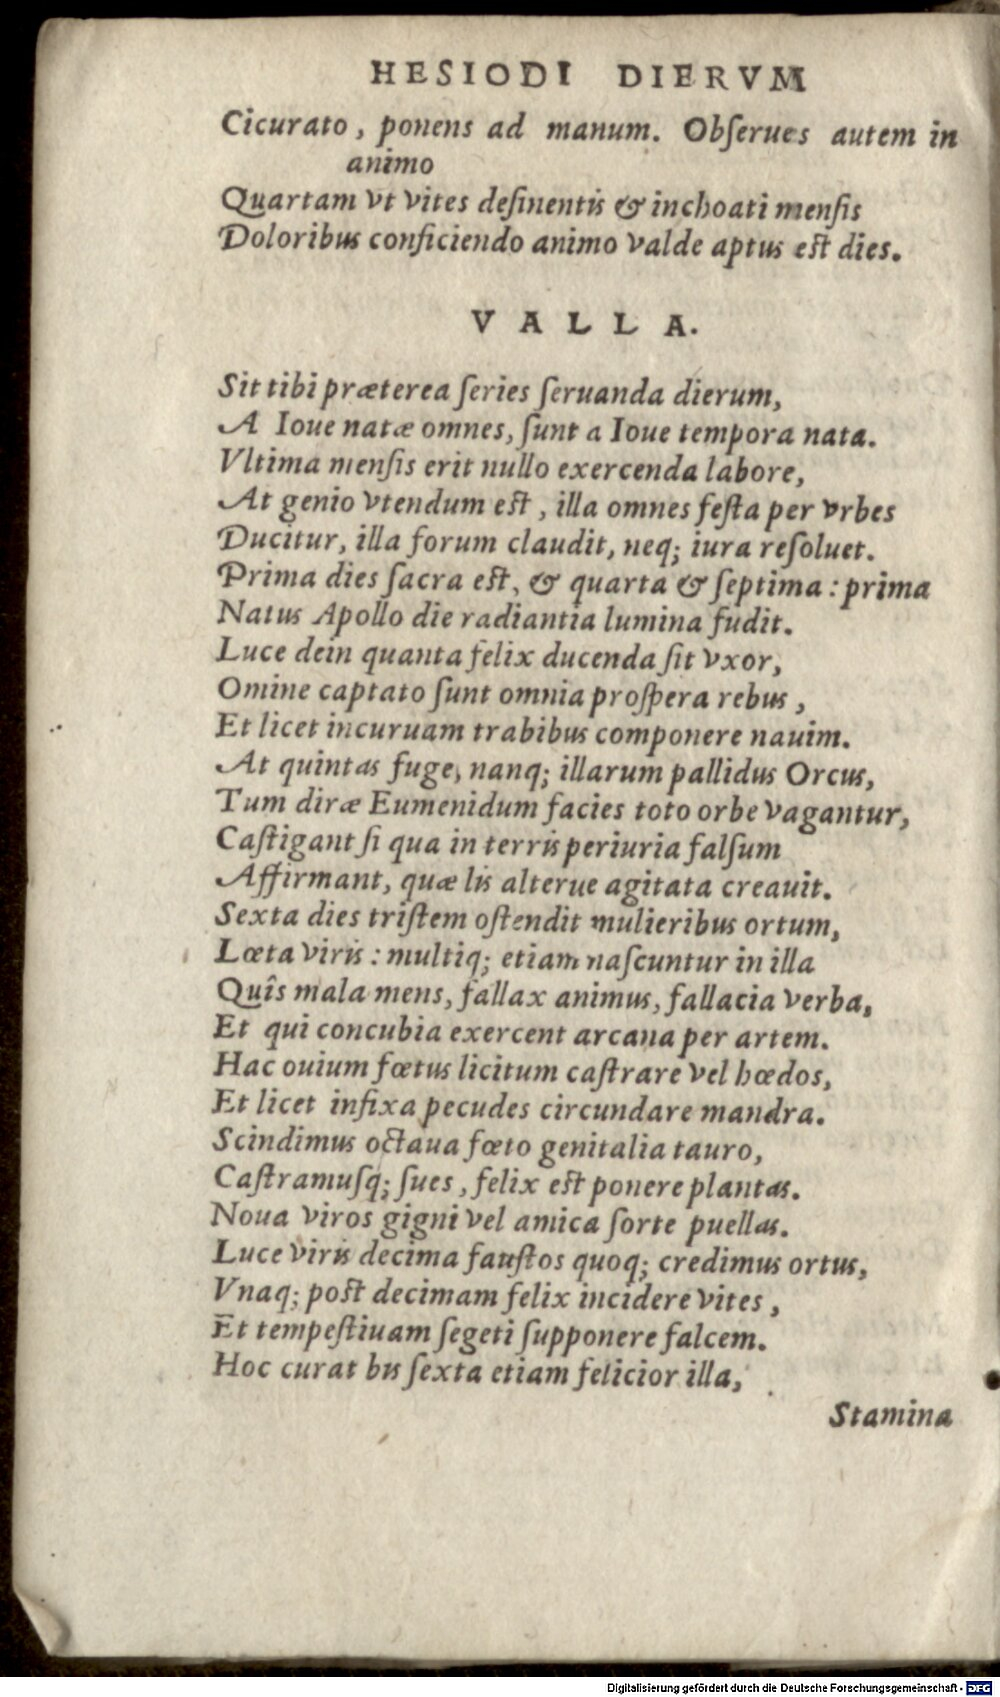 HESIODI DIERVM
Cicurato, ponens ad manum. Obſerues autem in
animo
Quartam vt vites deſinentis & inchoati menſis
Doloribus conficiendo animo valde aptus est dies.
VALLA.
Sit tibi præterea ſeries ſeruanda dierum,
A Ioue natæ omnes, ſunt a Ioue tempora nata.
Vltima menſis erit nullo exercenda labore,
At genio vtendum est, illa omnes feſta per vrbes
Ducitur, illa forum claudit, neq; iura reſoluet.
Prima dies ſacra est, & quarta & ſeptima: prima
Natus Apollo die radiantia lumina fudit.
Luce dein quanta felix ducenda ſit vxor,
Omine captato ſunt omnia proſpera rebus,
Et licet incuruam trabibus componere nauim.
At quintas fuge, nanq; illarum pallidus Orcus,
Tum diræ Eumenidum facies toto orbe vagantur,
Caſtigant ſi qua in terris periuria falſum
Affirmant, quæ lis alterue agitata creauit.
Sexta dies triſtem oſtendit mulieribus ortum,
Lœta viris: multiq; etiam naſcuntur in illa
Quîs mala mens, fallax animus, fallacia verba,
Et qui concubia exercent arcana per artem.
Hac ouium fœtus licitum caſtrare vel hœdos,
Et licet infixa pecudes circundare mandra.
Scindimus octaua fœto genitalia tauro,
Caſtramuſq; ſues, felix est ponere plantas.
Noua viros gigni vel amica ſorte puellas.
Luce viris decima fauſtos quoq; credimus ortus,
Vnaq; post decimam felix incidere vites,
Et tempeſtiuam ſegeti ſupponere falcem.
Hoc curat bis ſexta etiam felicior illa,
Stamina
Digitalisierung gefördert durch die Deutsche Forschungsgemeinschaft - DFG